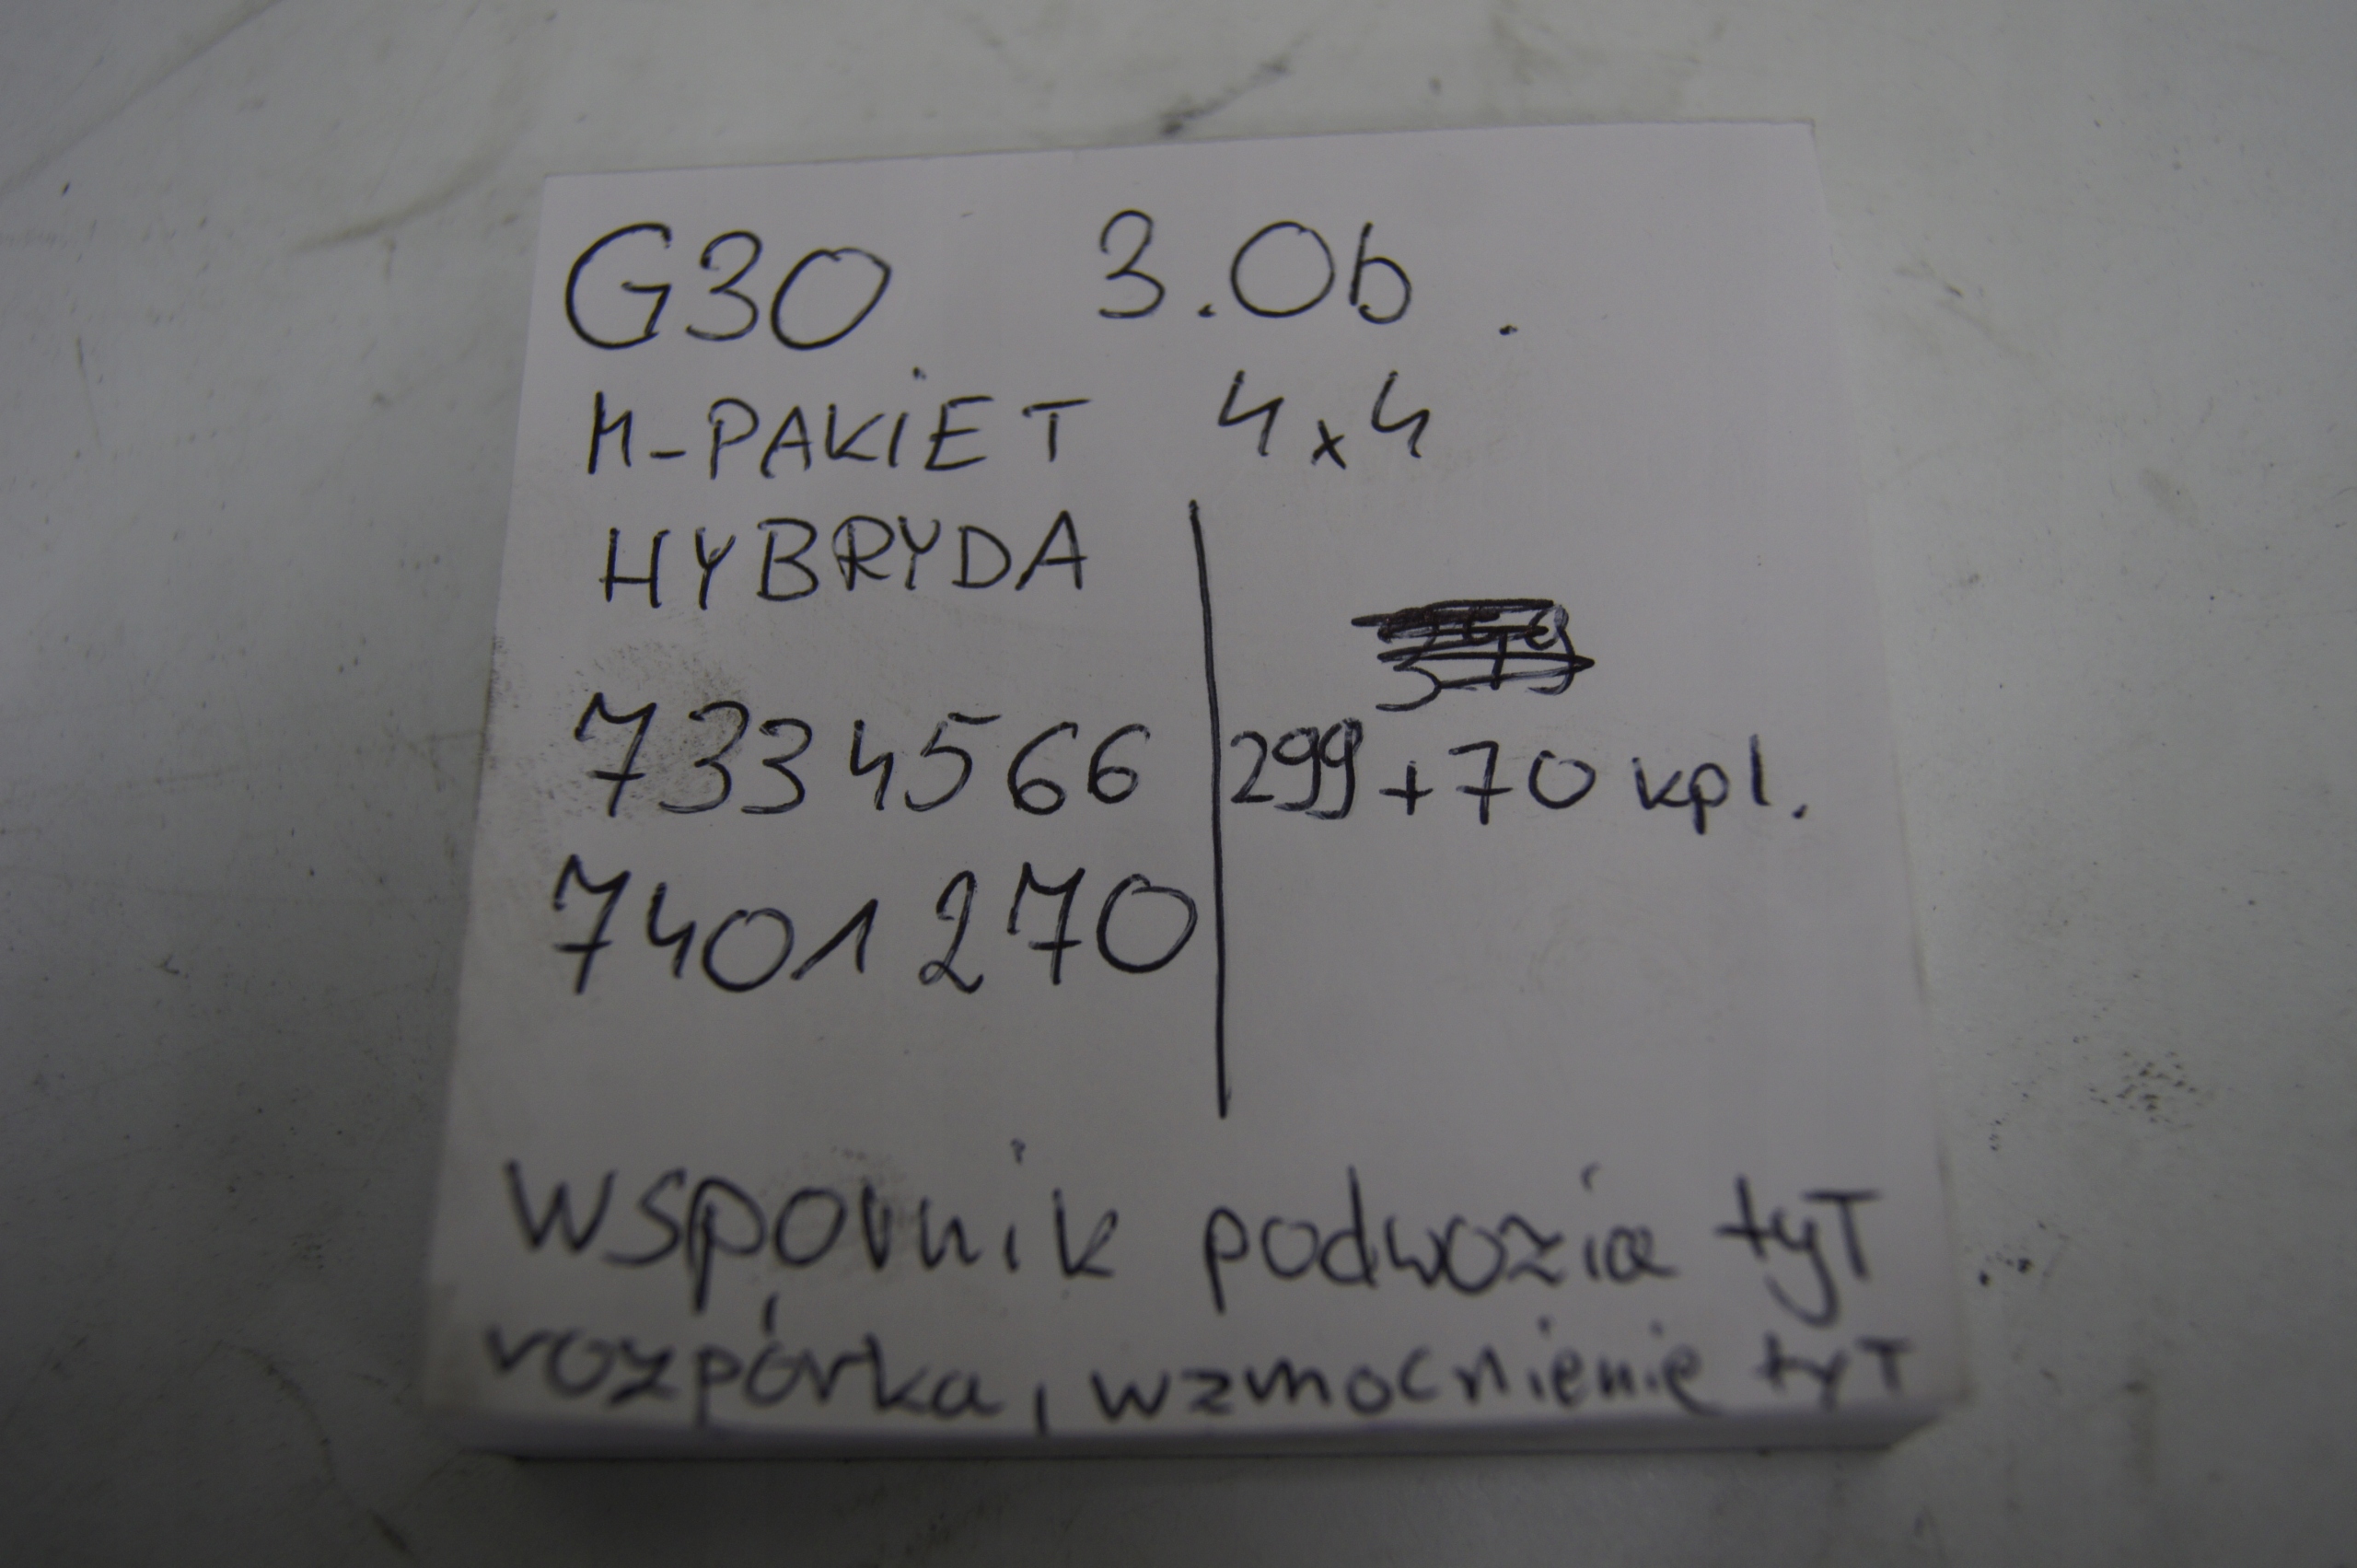 G30 3.0b.
M-PAKiET 4x4
HYBRYDA
7334566 299+70 kpl.
7401270
wspornik podwozia tyT
rozpórka, wzmocnienie tyT